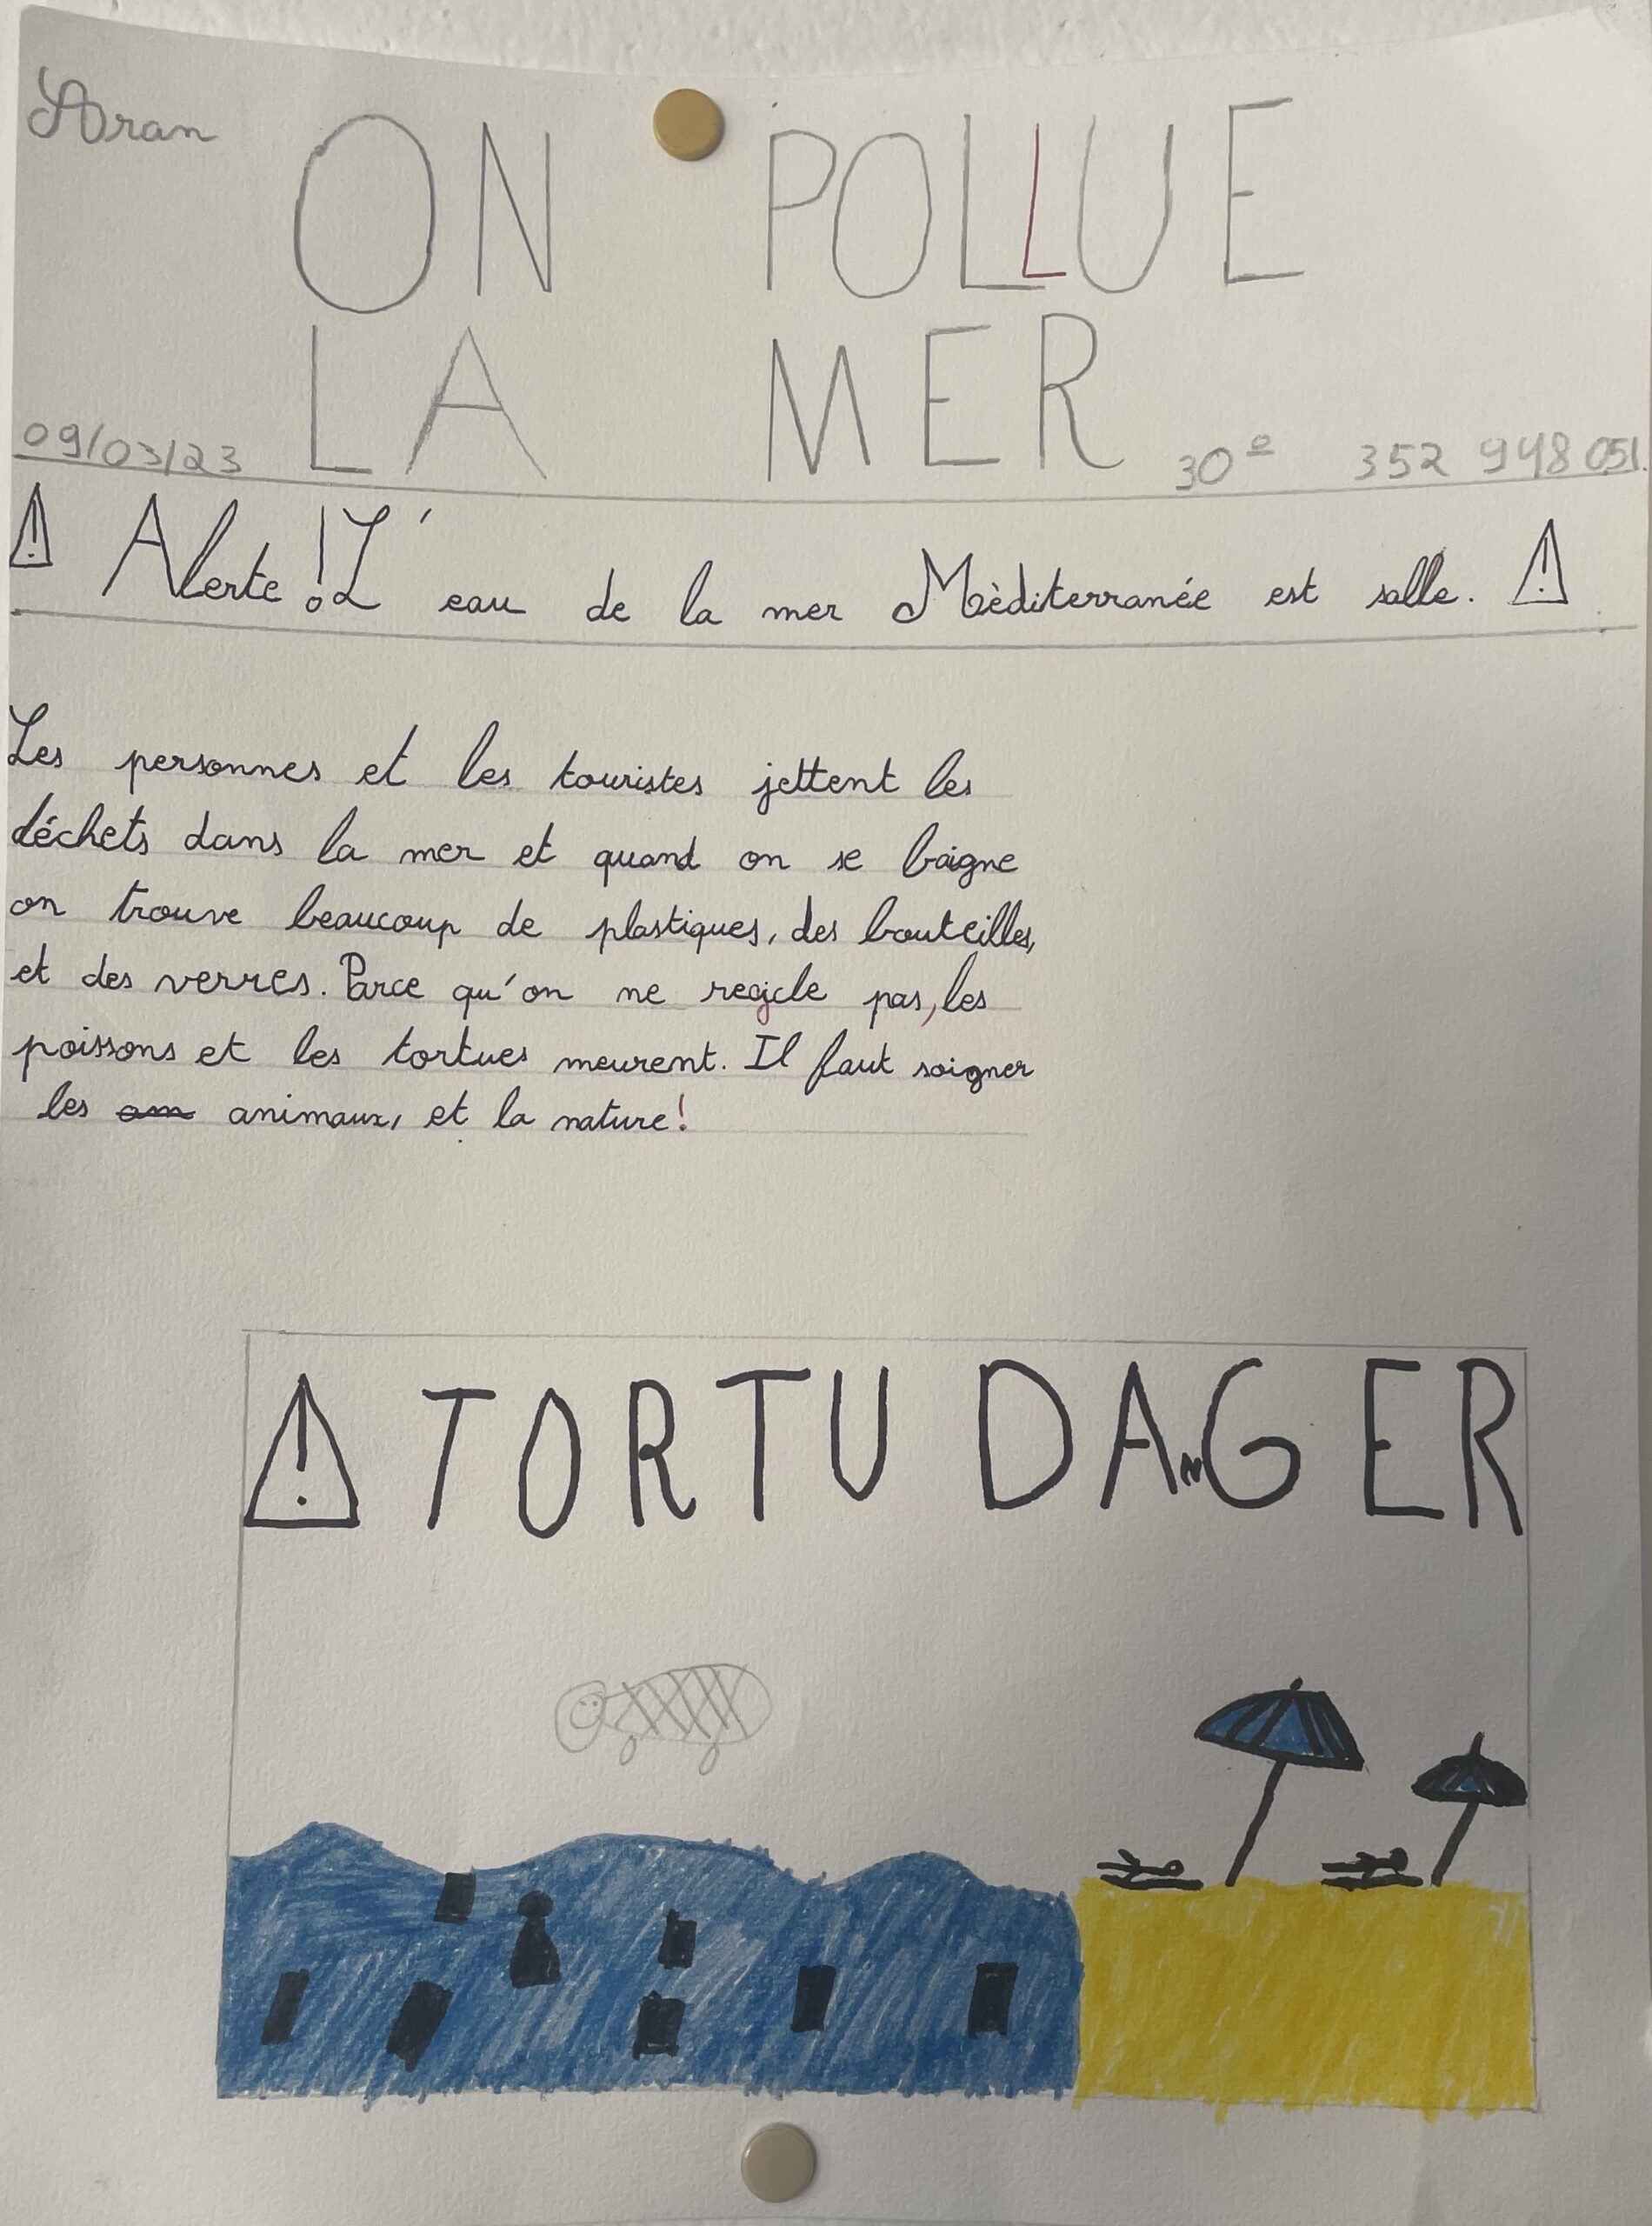 Aran
ON POLLUE
LA MER
09/03/23 30º 352 948 051.
Alerte! L'eau de la mer Mèditerranée est salle.
Les personnes et les touristes jettent les
déchets dans la mer et quand on se baigne
on trouve beaucoup de plastiques, des bouteilles,
et des verres. Parce qu'on ne recycle pas, les
poissons et les tortues meurent. Il faut soigner
les an animaux, et la nature!
TORTU DANGER